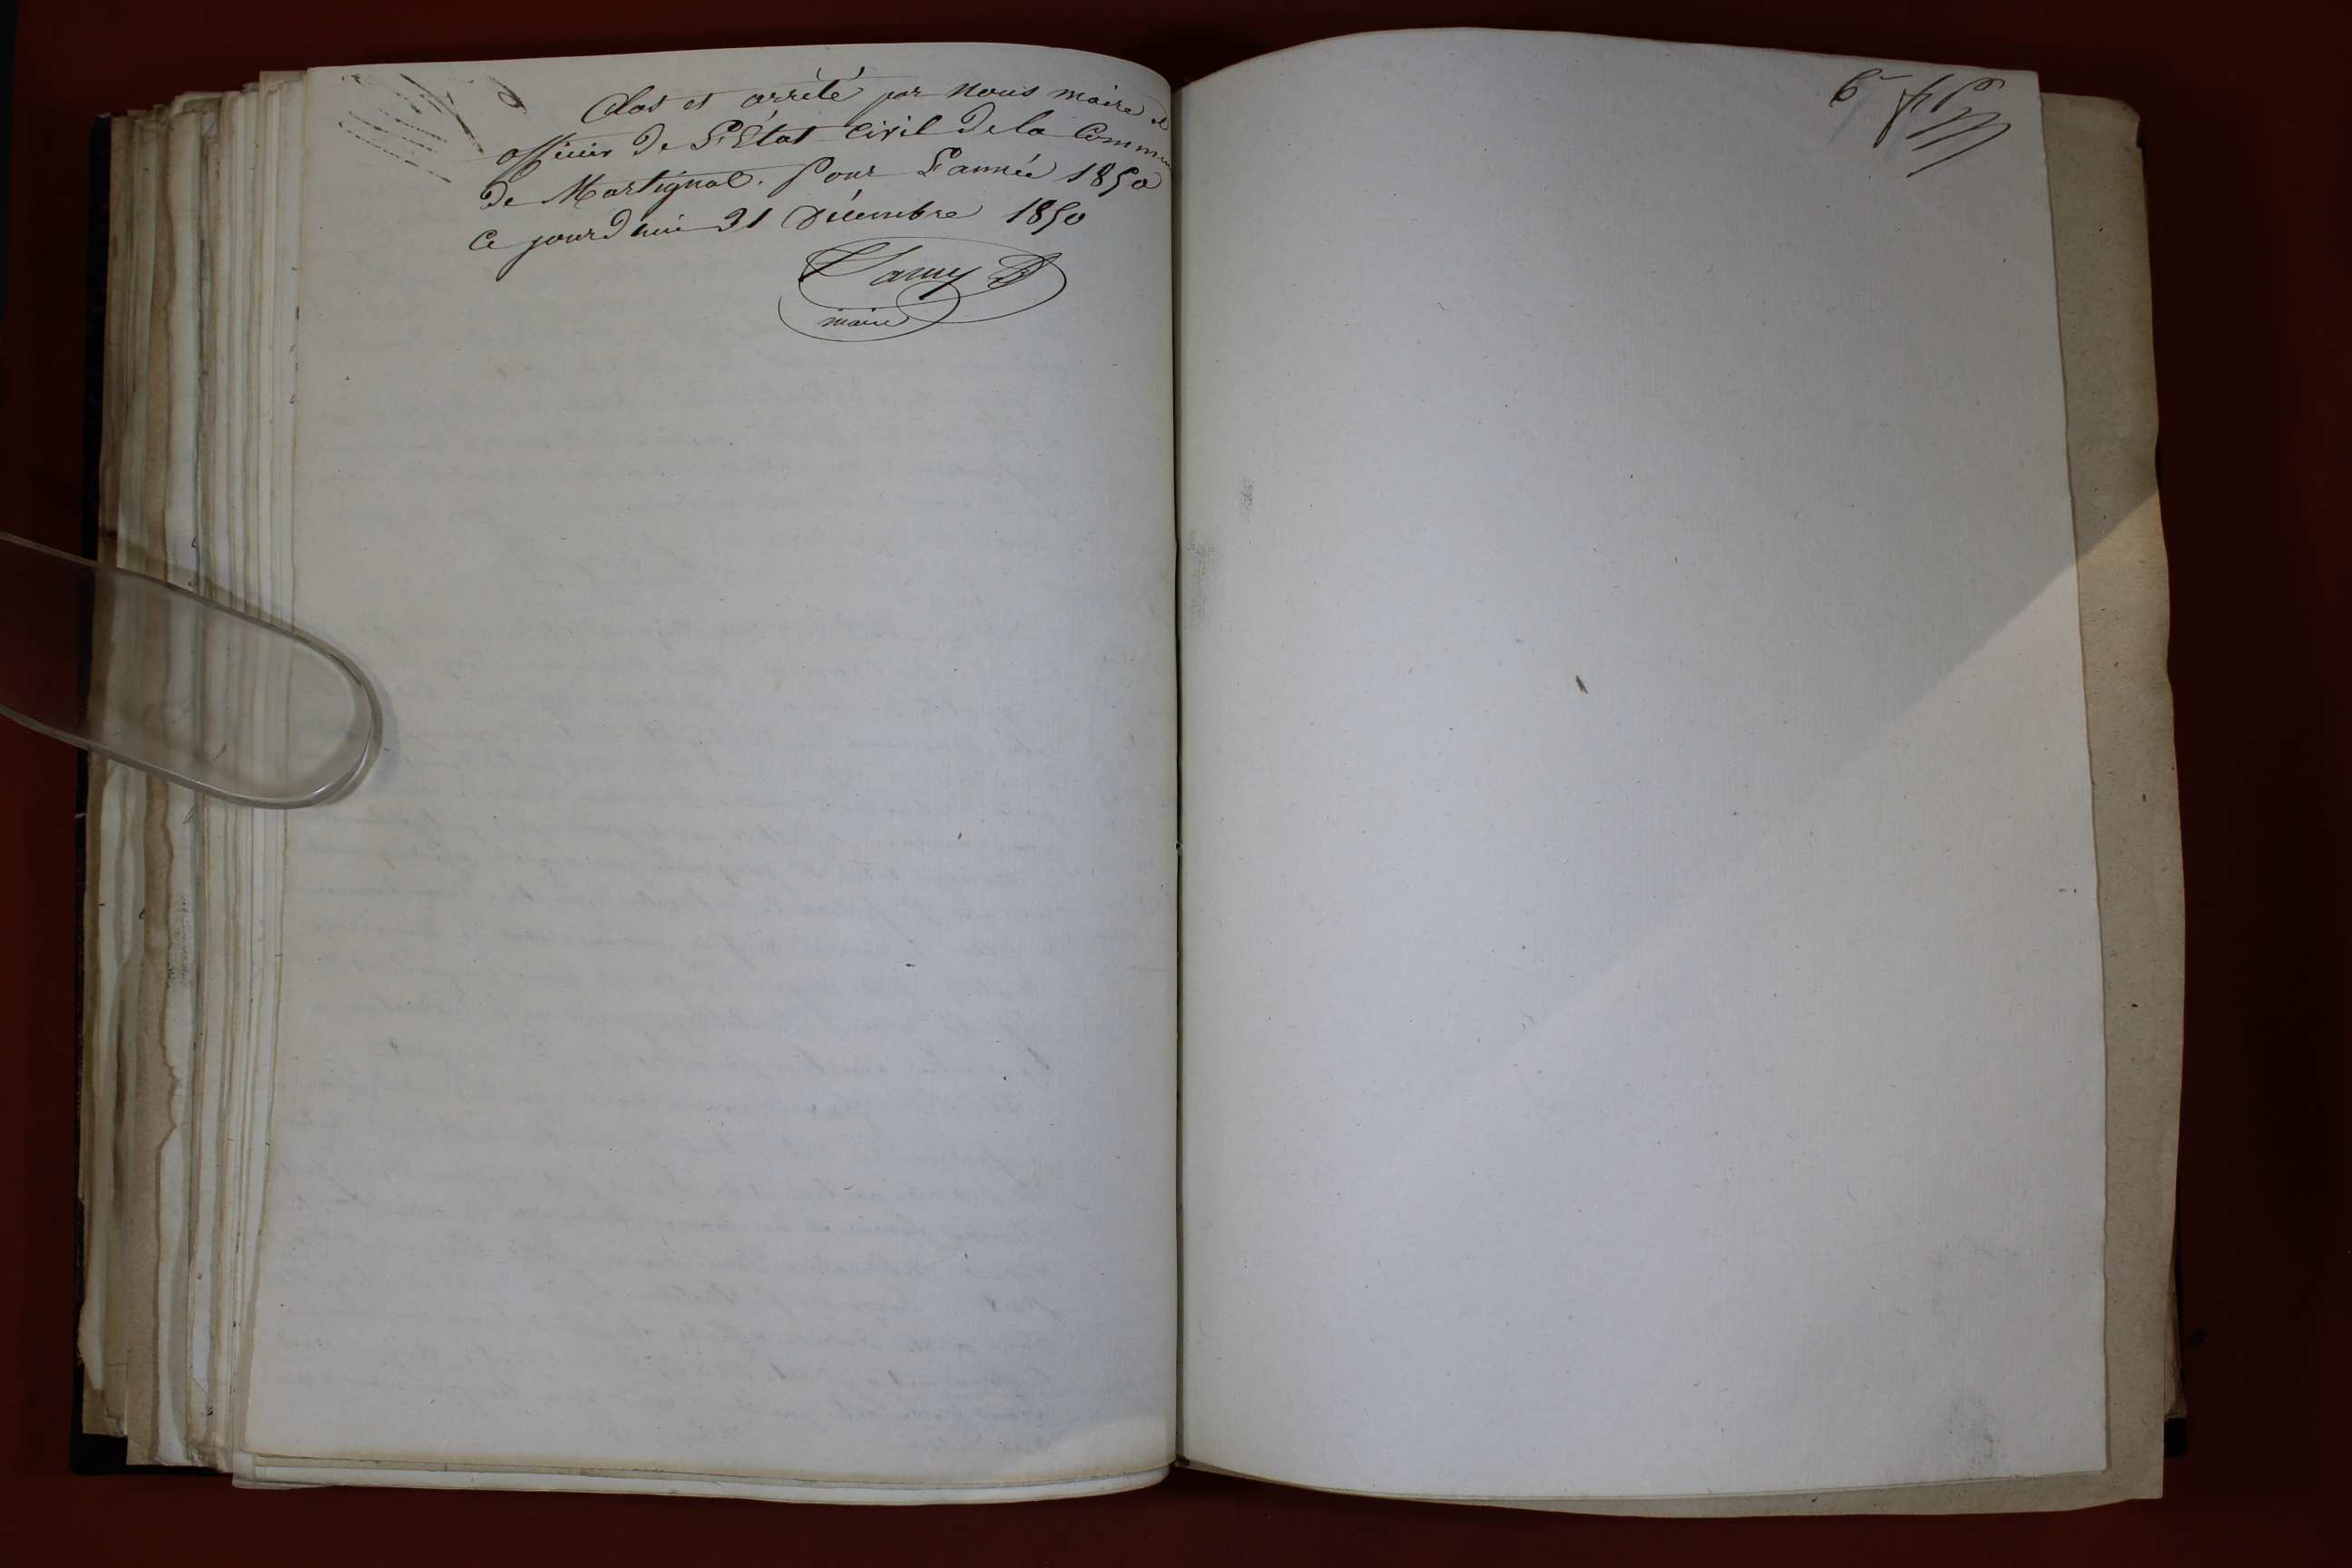 Clos et arrêté par nous maire et
officier de l'Etat Civil de la Commune
de Martignat. Pour L'année 1850
Ce jourd'hui 31 Décembre 1850
maire
6